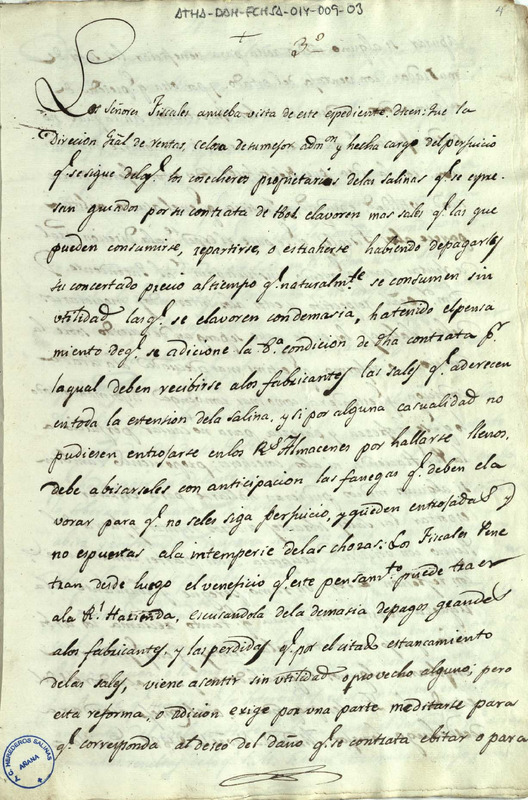 ATHA-DAH-FCHSA-014-009-03
4
+
3º
Los Señores Fiscales a nueba vista de este espediente, dicen: que la
Direcion Gral de rentas, celosa de su mejor admon y hecha cargo del perjuicio
q.e se sigue de q.e los cosecheros propietarios de las salinas q.e se espre-
san guiados por su contrata de tbol elavoren mas sales q.e las que
pueden consumirse, repartirse, o estraherse habiendo de pagarles
su concertado precio al tiempo q.e naturalm.te se consumen sin
utilidad las q.e se elavoren con demasia, ha tenido el pensa
miento de q.e se adicione la 8.a condicion de dha contrata p.r
la qual deben recibirse a los fabricantes las sales q.e aderecen
en toda la estension de la salina, y si por alguna casualidad no
pudiesen entrojarse en los R.s Almacenes por hallarse llenos,
debe abisarseles con anticipacion las fanegas q.e deben ela
vorar para q.e no seles siga perjuicio, y queden entrojadas y
no espuestas a la intemperie de las chozas: Los Fiscales pene
tran desde luego el veneficio q.e este pensam.to puede traer
a la R.l Hazienda, escusandola de la demasia de pagos grandes
a los fabricantes, y las perdidas q.e por el citado estancamiento
de las sales, viene a sentir sin utilidad o provecho alguno; pero
esta reforma, o adicion exige por una parte meditarse para
q.e corresponda al deseo del daño q.e se contrata ebitar o para
A. C. HEREDEROS SALINAS
AÑANA